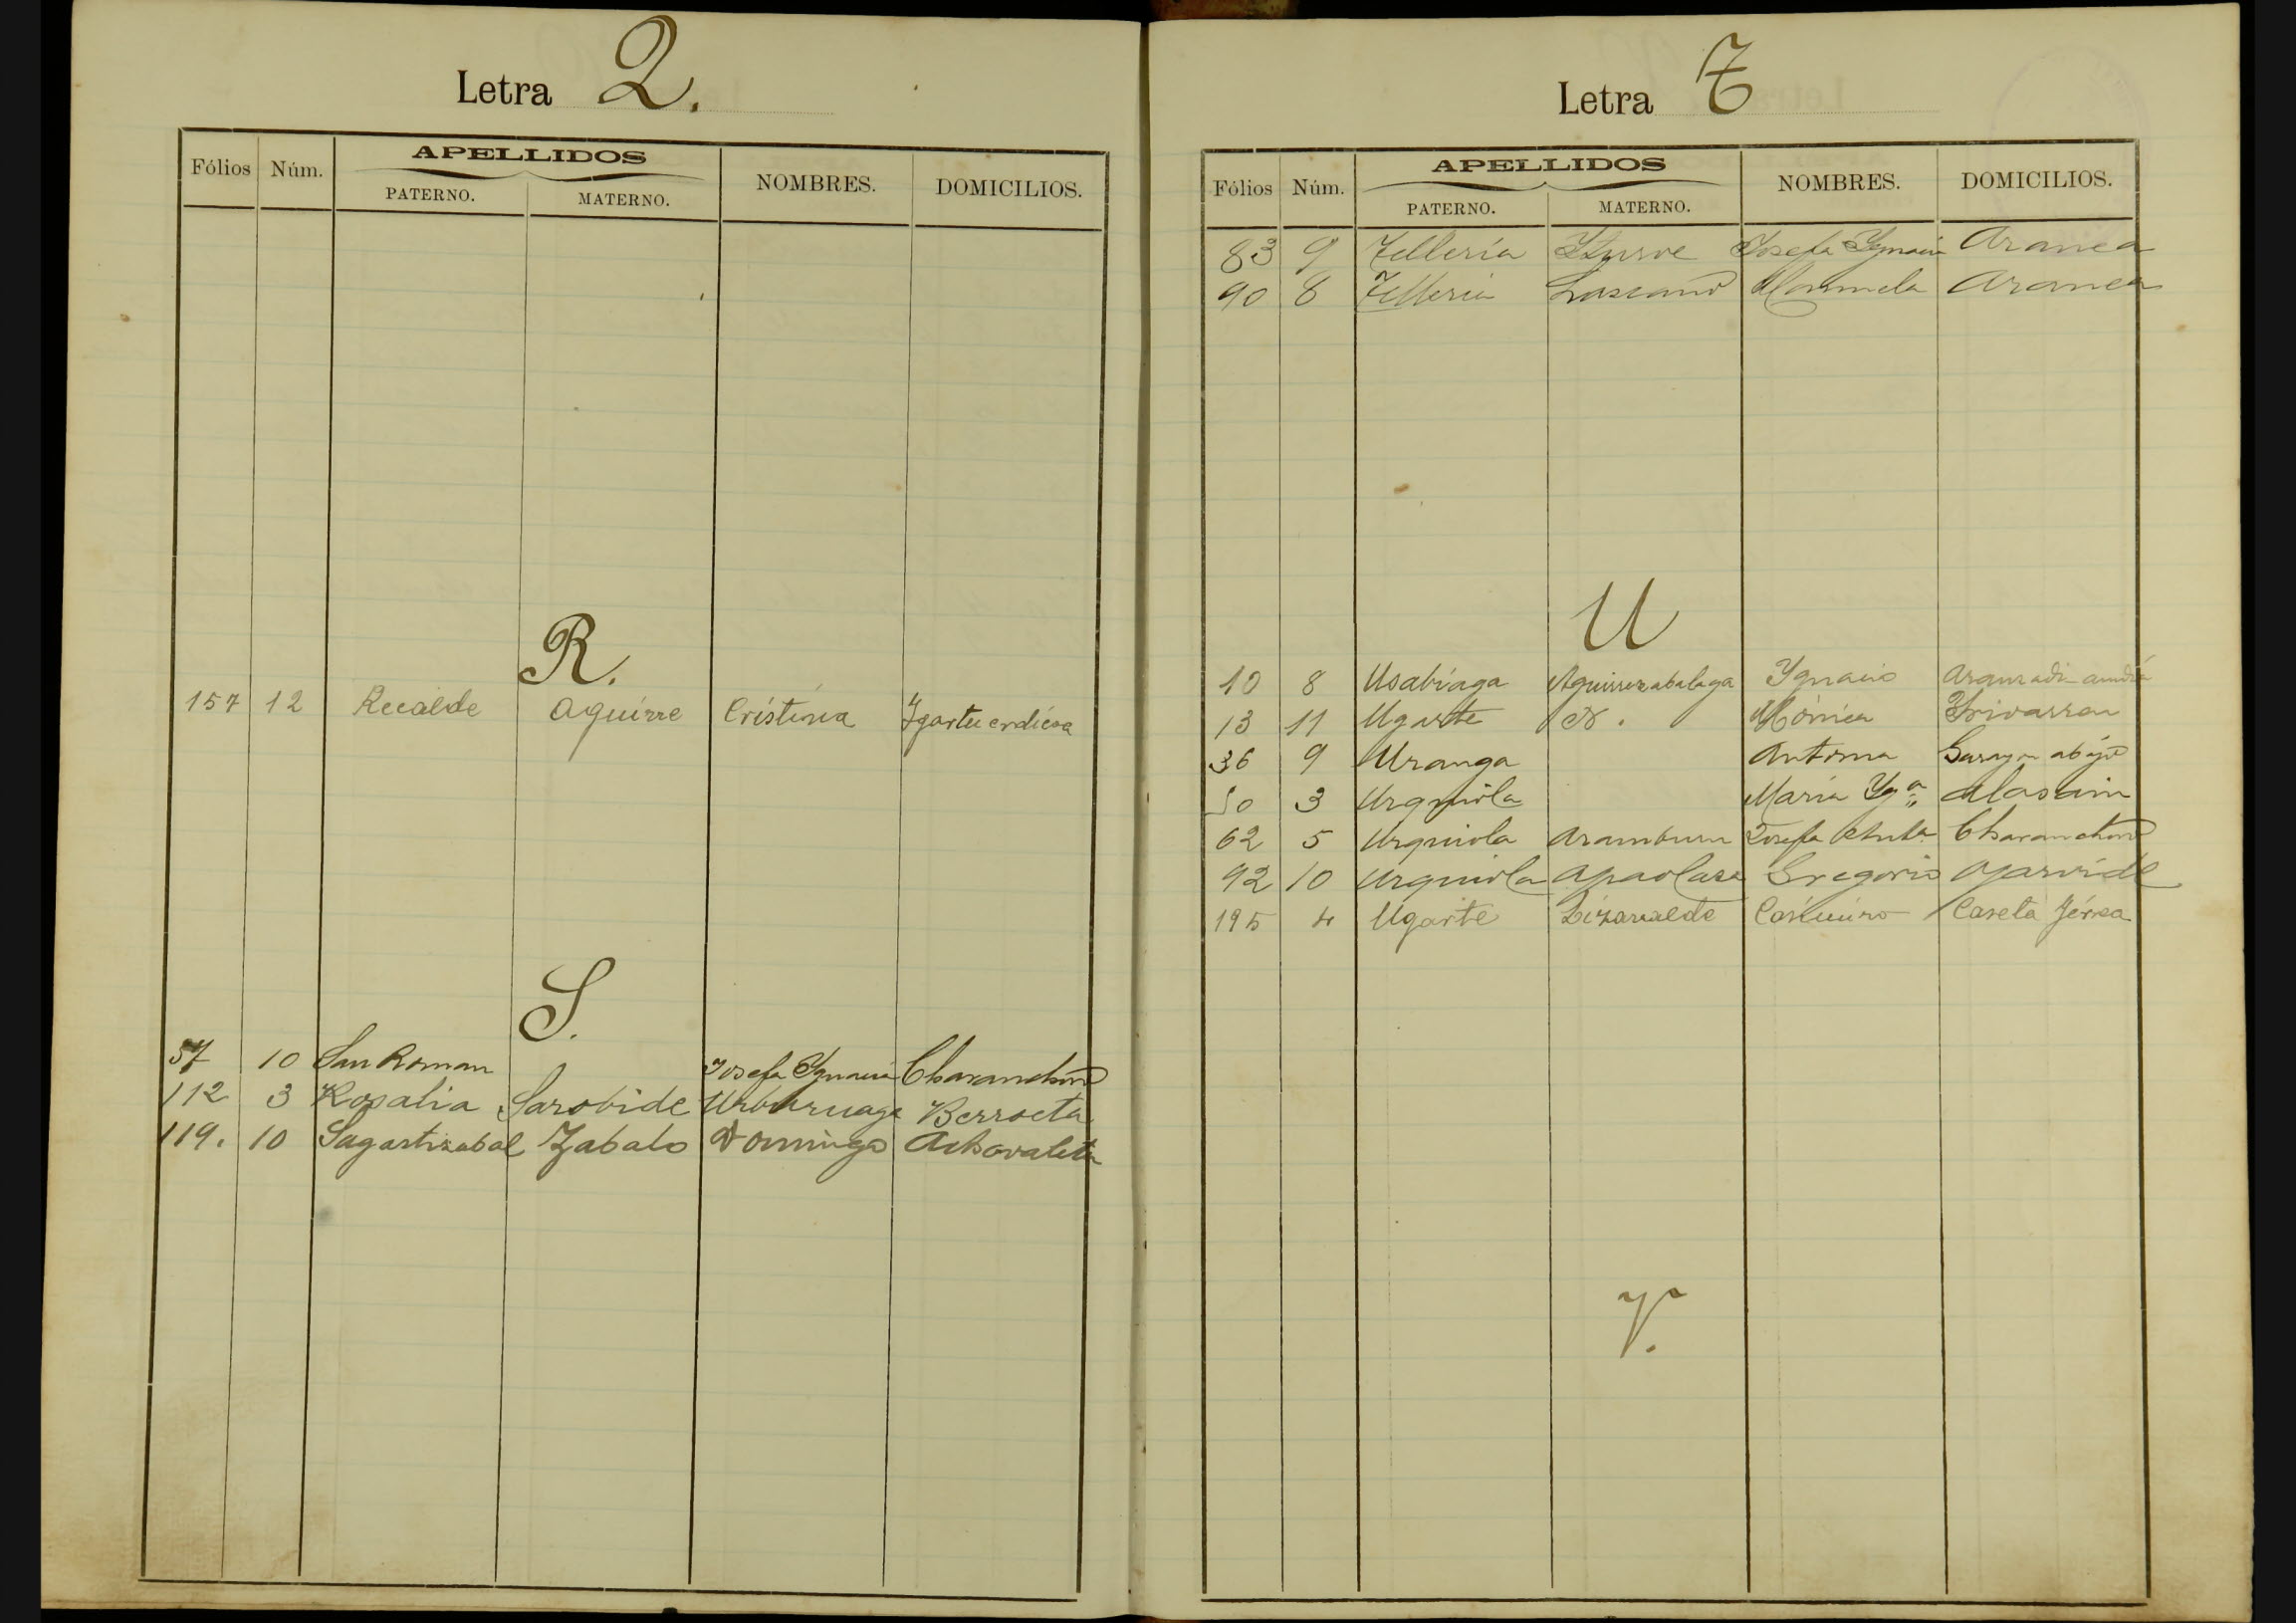 Letra Q.
Fólios Núm. APELLIDOS NOMBRES. DOMICILIOS.
PATERNO. MATERNO.
R.
157 12 Recalde Aguirre Cristina Ygartu erdicoa
S.
57 10 San Roman Josefa Ygnacia Charanchon
112 3 Rosalia Sarobide Urbururuaga Berroeta
119. 10 Sagastizabal Zabalo Domingo Achavaleta
Letra T
Fólios Núm. APELLIDOS NOMBRES. DOMICILIOS.
PATERNO. MATERNO.
83 9 Tellería Yturve Josefa Ygnacia Aranea
90 8 Telleria Lascano Manuela Aranea
U
10 8 Usabiaga Aguirrezabalaga Ygnacio
13 11 Ugarte N. Mónica Yrivarren
36 9 Uranga Antonia Garayoa abajo
50 3 Urquiola Maria Yg.ª Alasain
62 5 Urquiola Aramburu Josefa Charanchon
92 10 Urquiola Apaolasa Gregorio Oyarvide
195 4 Ugarte Lizarralde Casimiro Caseta férrea
V.